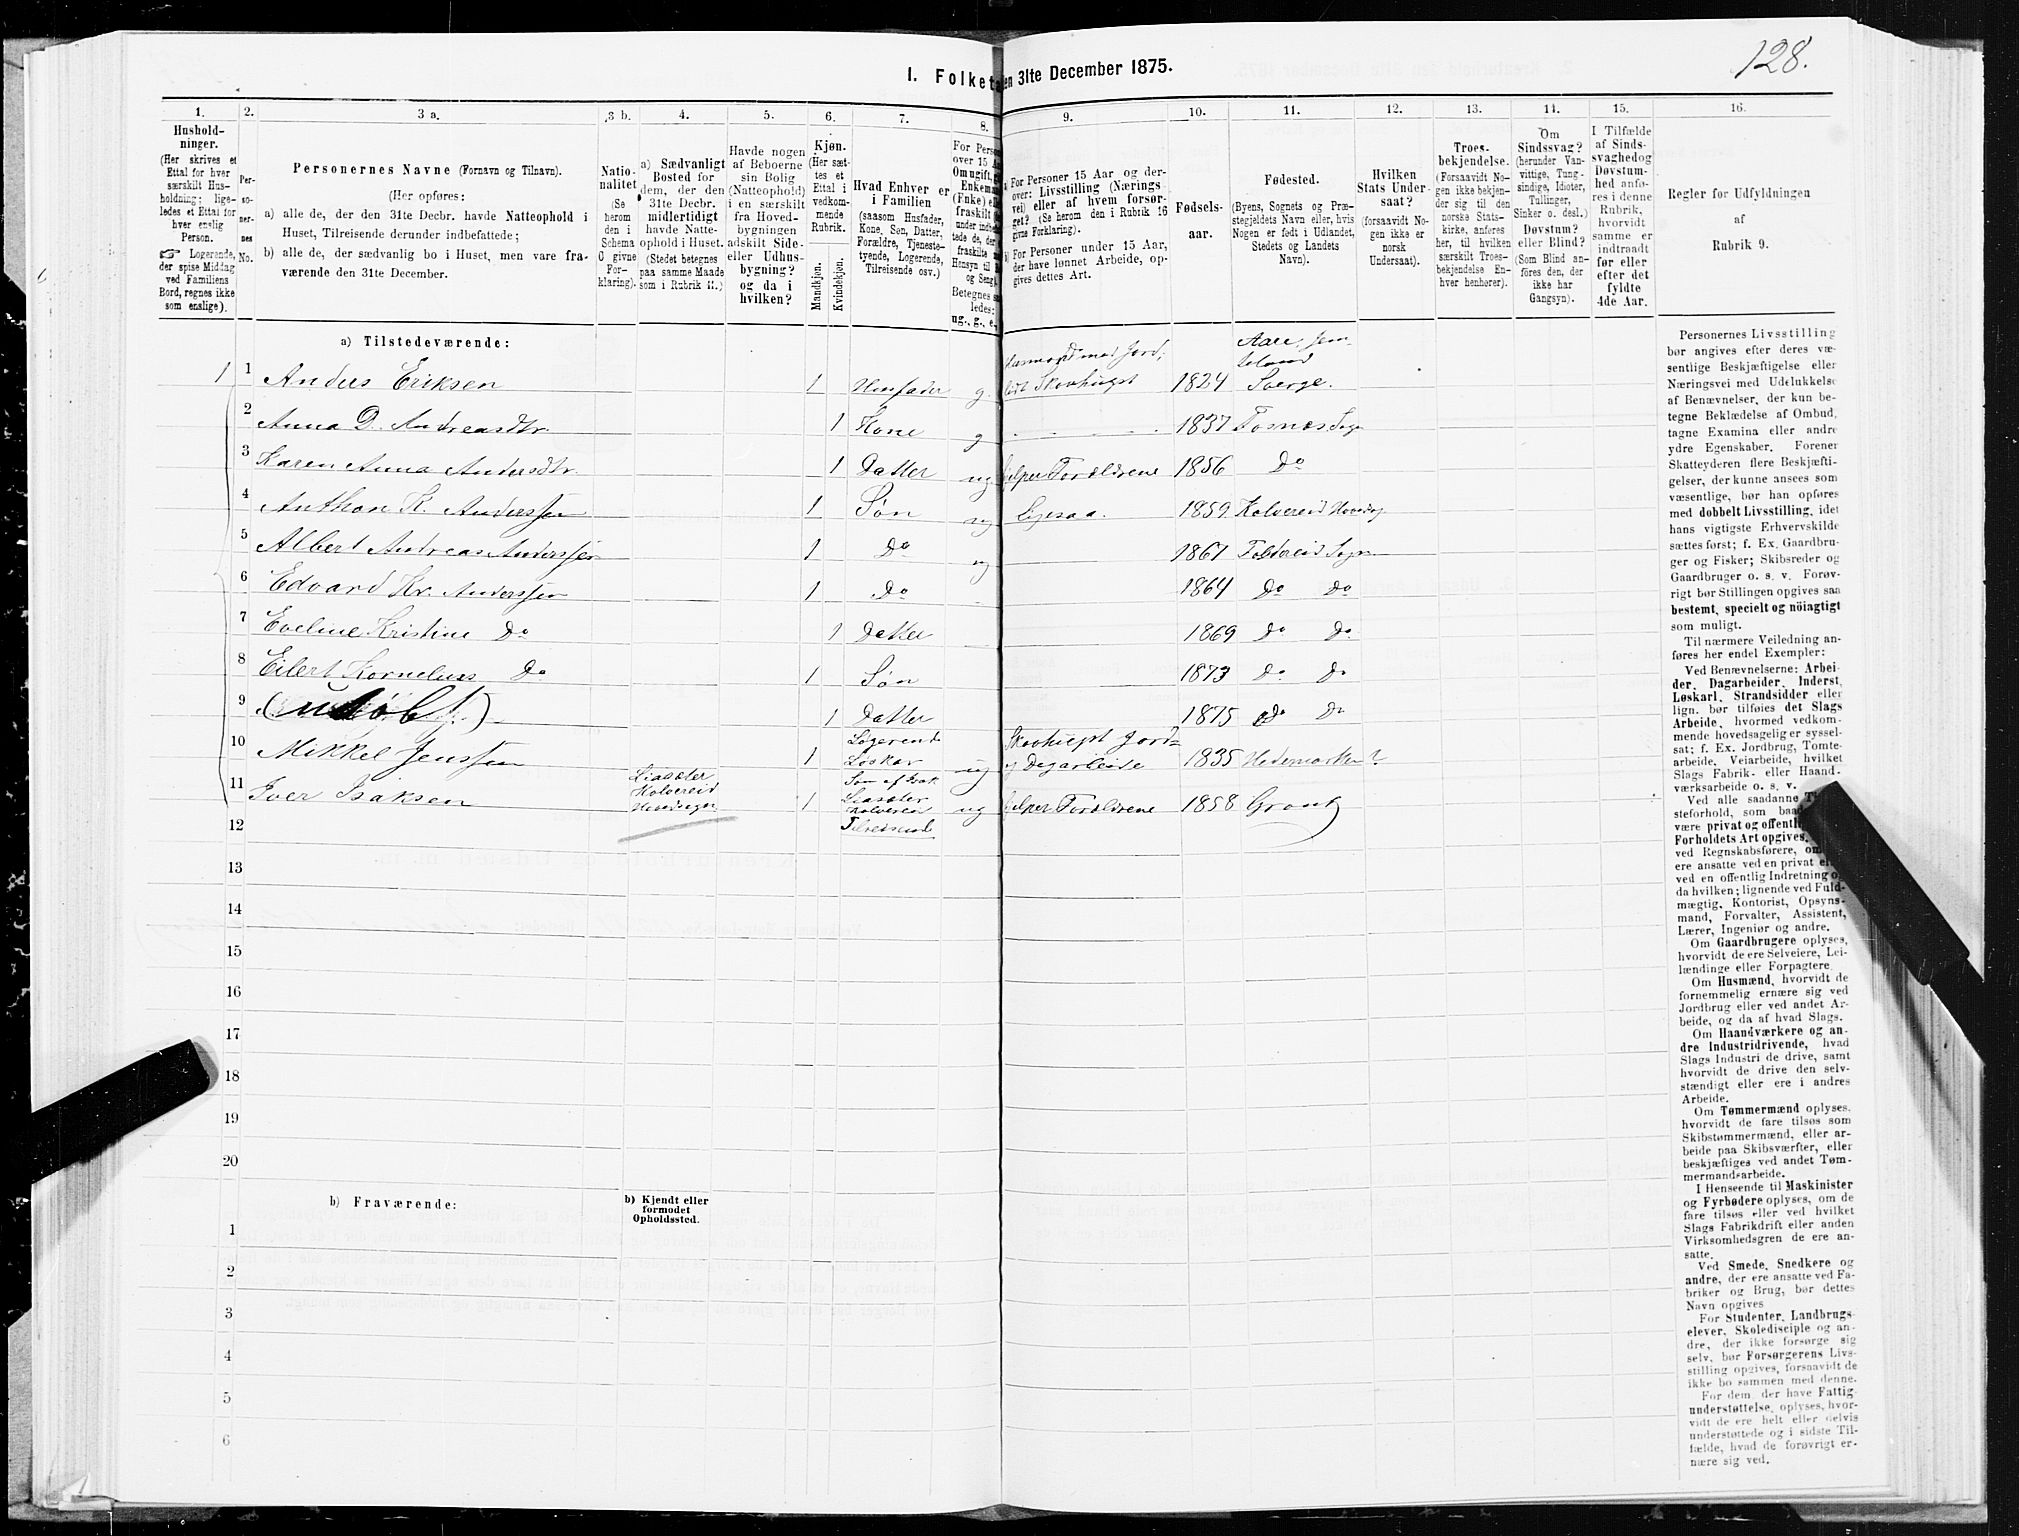 128.
I. Folketa
en 31te December 1875.
1.
2.
3 a.
3 b.
4.
5.
6.
7.
8.
9.
10.
11.
12.
13.
14.
15.
16.
Hushold-
ninger.
(Her skrives et
Ettal for hver
særskilt Hus-
holdning; lige-
ledes et Ettal for
hver enslig
Person.
☞ Logerende,
der spise Middag
ved Familiens
Bord, regnes ikke
som enslige).
Per-
so-
ner-
nes
No.
Personernes Navne (Fornavn og Tilnavn).
(Her opføres:
a) alle de, der den 31te Decbr. havde Natteophold i
Huset, Tilreisende derunder indbefattede;
b) alle de, der sædvanlig bo i Huset, men vare fra-
værende den 31te December.
Natio-
nalitet
(Se
herom
den i
Schema
C givne
For-
klaring).
a) Sædvanligt
Bosted for
dem, der den
31te Decbr.
midlertidigt
havde Natte-
ophold i Huset.
(Stedet betegnes
paa samme Maade
som i Rubrik 11.)
Havde nogen
af Beboerne
sin Bolig
(Natteophold)
i en særskilt
fra Hoved-
bygningen
adskilt Side-
eller Udhus-
bygning?
og da i
hvilken?
Kjøn.
(Her sæt-
tes et
Ettal i
vedkom-
mende
Rubrik.
Mandkjøn.
Kvindekjøn.
Hvad Enhver er
i Familien
(saasom Husfader,
Kone, Søn, Datter,
Forældre, Tjeneste-
tyende, Logerende,
Tilreisende osv.)
For Person
over 15 Aa
Om ugift, g
Enkemand
(Enke) ell
fraskilt
Betegnes s
ledes:
ug., g., e.,
a) For Personer 15 Aar og der-
over: Livsstilling (Nærings-
vei) eller af hvem forsør-
get? (Se herom den i Rubrik 16
givne Forklaring).
b) For Personer under 15 Aar,
der have lønnet Arbeide, op-
gives dettes Art.
Fødsels-
aar.
Fødested.
(Byens, Sognets og Præ-
stegjeldets Navn eller, hvis
Nogen er født i Udlandet,
Stedets og Landets
Navn).
Hvilken
Stats Under-
saat?
(forsaavidt No-
gen ikke er
norsk
Undersaat).
Troes-
bekjendelse.
(Forsaavidt No-
gen ikke bekjen-
der sig til den
norske Stats-
kirke, anføres
her, til hvilken
særskilt Troes-
bekjendelse En-
hver henhører).
Om
Sindssvag?
(herunder Van-
vittige, Tung-
sindige, Idioter,
Tullinger,
Sinker o. desl.)
Døvstum?
eller Blind?
(Som Blind an-
føres den, der
ikke har
Gangsyn).
I Tilfælde
af Sinds-
svaghedog
Døvstum-
hed anfø-
res i denne
Rubrik,
hvorvidt
samme er
indtraadt
før eller
efter det
fyldte
4de Aar.
Regler for Udfyldningen
af
Rubrik 9.
a) Tilstedeværende:
1 1 Anders Eriksen 1 Husfader g. Husmand med Jord, 1824 Aare, Jem- Sverge.
2 Anna D. Andreasdtr. 1 Kone g 1837 Fosnæs Sogn
3 Karen Anna Andersdtr. 1 Datter ug hjelper Forældrene 1856 Do
4 Anthon K. Anderssen 1 Søn ug Ligesaa. 1859 Kolvereid Hovedsog
5 Albert Andreas Anderssen 1 Do ug 1861 Foldereid Sogn
6 Edvard Kr. Anderssen 1 Do 1864 Do Do
7 Eveline Kristine Do 1 Datter 1869 Do Do
8 Eilert Kornelius Do 1 Søn 1873 Do Do
9 (udøbt) 1 Datter 1875 Do Do
10 Mikkel Jenssen 1 Løgerende Løskar ug Skovhugst Jord- og Dagarbeide 1835 Hedemarken?
11 Iver Isaksen Liasæter Kolvereid Hovedsogn 1 Søn af Isak Liasæter Kolvereid Tilreisende ug hjelper Forældrene 1858 Grong
12
13
14
15
16
17
18
19
20
b) Fraværende:
b) Kjendt eller
formodet
Opholdssted.
1
2
3
4
5
6
Personernes Livsstilling
bør angives efter deres væ-
sentlige Beskjæftigelse eller
Næringsvei med Udelukkelse
af Benævnelser, der kun be-
tegne Beklædelse af Ombud,
tagne Examina eller andre
ydre Egenskaber. Forener
Skatteyderen flere Beskjæfti-
gelser, der kunne ansees som
væsentlige, bør han opføres
med dobbelt Livsstilling, idet
hans vigtigste Erhvervskilde
sættes først; f. Ex. Gaardbru-
ger og Fisker; Skibsreder og
Gaardbruger o. s. v. Forøv-
rigt bør Stillingen opgives saa
bestemt, specielt og nöiagtigt
som muligt.
Til nærmere Veiledning an-
føres her endel Exempler:
Ved Benævnelserne: Arbei-
der, Dagarbeider, Inderst,
Løskarl, Strandsidder eller
lign. bør tilføies det Slags
Arbeide, hvormed vedkom-
mende hovedsagelig er syssel-
sat; f. Ex. Jordbrug, Tomte-
arbeide, Veiarbeide, hvilket
Slags Fabrik- eller Haand-
værksarbeide o. s. v.
Ved alle saadanne
steforhold, som baade
være privat og offentlig
Forholdets Art opgives.
ved Regnskabsførere, om
ere ansatte ved en privat el
ved en offentlig Indretning o
da hvilken; lignende ved Fuld-
mægtig, Kontorist, Opsyns-
mand, Forvalter, Assistent,
Lærer, Ingeniør og andre.
Om Gaardbrugere oplyses,
hvorvidt de ere Selveiere, Lei-
lændinge eller Forpagtere
Om Husmænd, hvorvidt de
fornemmelig ernære sig ved
Jordbrug eller ved andet Ar-
beide, og da af hvad Slags.
Om Haandværkere og an-
dre Industridrivende, hvad
Slags Industri de drive, samt
hvorvidt de drive den selv-
stændigt eller ere i andres
Arbeide.
Om Tømmermænd oplyses,
hvorvidt de fare tilsøs som
Skibstømmermænd, eller ar-
beide paa Skibsværfter, eller
beskjæftiges ved andet Tøm-
mermandsarbeide.
I Henseende til Maskinister
og Fyrbødere oplyses, om de
fare tilsøs eller ved hvilket
Slags Fabrikdrift eller anden
Virksomhedsgren de ere an-
satte.
Ved Smede, Snedkere og
andre, der ere ansatte ved Fa-
briker og Brug, bør dettes
Navn opgives
For Studenter, Landbrugs-
elever, Skoledisciple og an-
dre, der ikke forsørge sig
selv, bør Forsørgerens Livs-
stilling opgives, forsaavidt de
ikke bo sammen med denne.
For dem, der have Fattig-
understøttelse, oplyses, hvor-
vidt de ere helt eller delvis
understøttede og i sidste Til-
fælde, hvad de forøvrigt er-
nære sig ved.